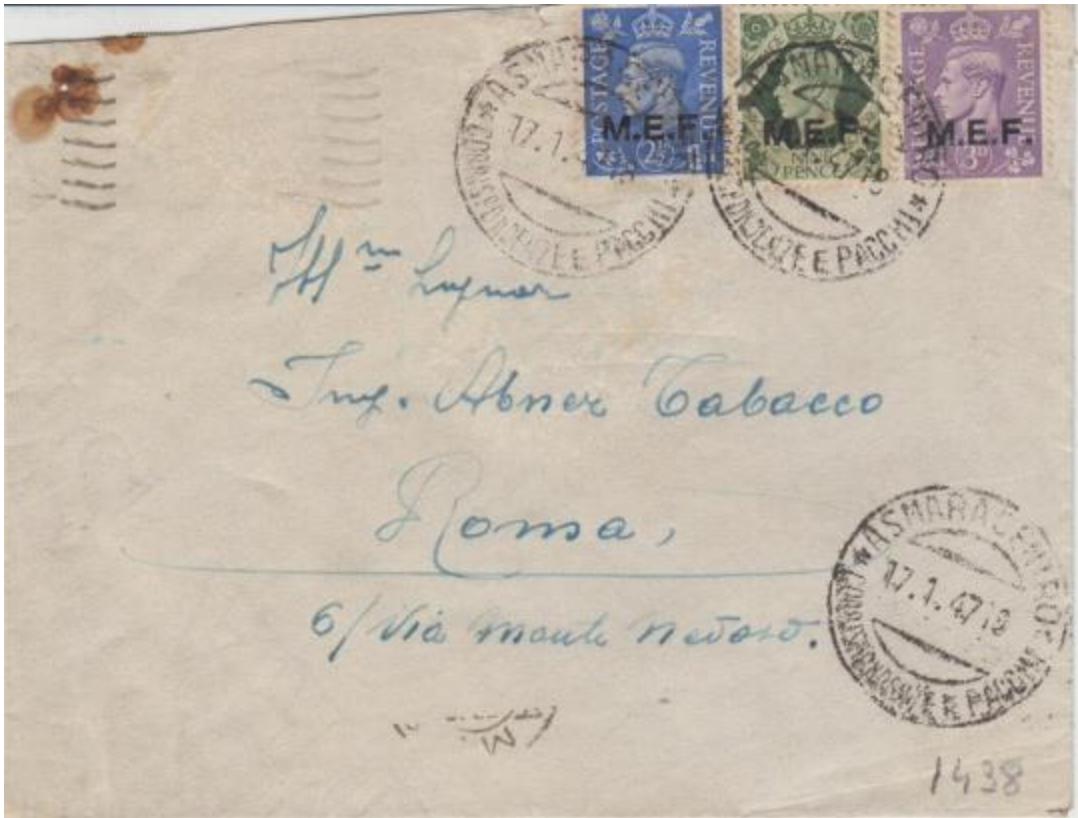 POSTAGE REVENUE
M.E.F.
2½D
M.E.F.
NINE
PENCE
POSTAGE REVENUE
M.E.F.
3D
ASMARA
17.1.4
CORRISPONDENZE E PACCHI
ASMARA C
CORRISPONDENZE E PACCHI
Ill mo Signor
Ing. Abner Tabacco
Roma,
6/ Via Monte Nevoso.
ASMARA CENTRO
17.1.47 18
CORRISPONDENZE E PACCHI
1438